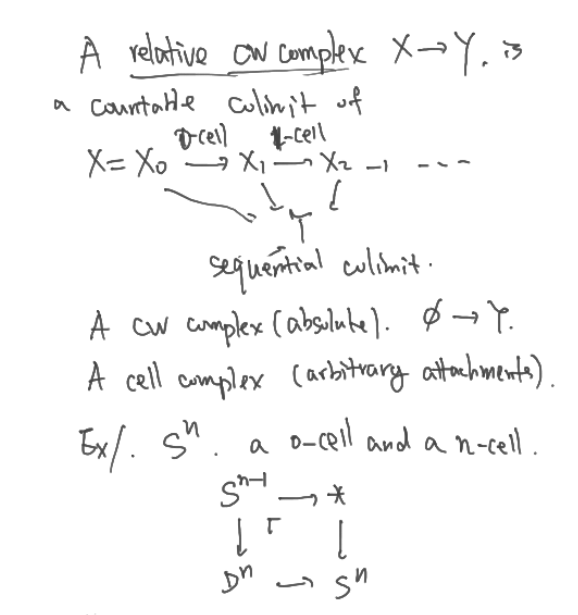 A relative CW complex X → Y. is
a countable colimit of
0-cell 1-cell
X = X₀ → X₁ → X₂ → ---
Y
sequential colimit.
A CW complex (absolute). ∅ → Y.
A cell complex (arbitrary attachments).
Ex/. Sⁿ. a 0-cell and a n-cell.
Sⁿ⁻¹ → *
↓ ┌ ↓
Dⁿ → Sⁿ